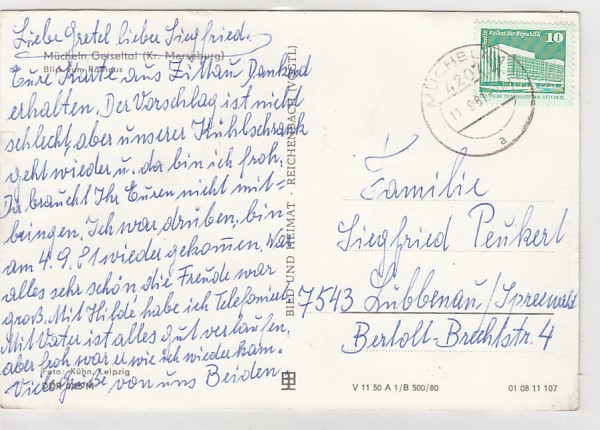 Liebe Gretel lieber Siegfried.
Mücheln Geiseltal (Kr. Merseburg)
Blick zum Rathaus
Eure Karte aus Zittau Dankend
erhalten. Der Vorschlag ist nicht
schlecht, aber unserer Kühlschrank
geht wieder u. da bin ich froh.
Da braucht Ihr Euren nicht mit-
bringen. Ich war drüben, bin
am 4.9.81 wieder gekommen. War
alles sehr schön die Freude war
groß. Mit Hilde habe ich Telefoniert
Mit Vater ist alles gut verlaufen,
aber froh war er wie ich wieder kam.
Foto: Kühn, Leipzig
Viele Grüße von uns Beiden
DDR M
BILD UND HEIMAT · REICHENBACH (VOGTL)
Palast der Republik 10
MÜCHELN
4207
11.
a
Familie
Siegfried Peukert
7543 Lübbenau/Spreewald
Bertolt-Brechtstr. 4
V 11 50 A 1/B 500/80
01 08 11 107